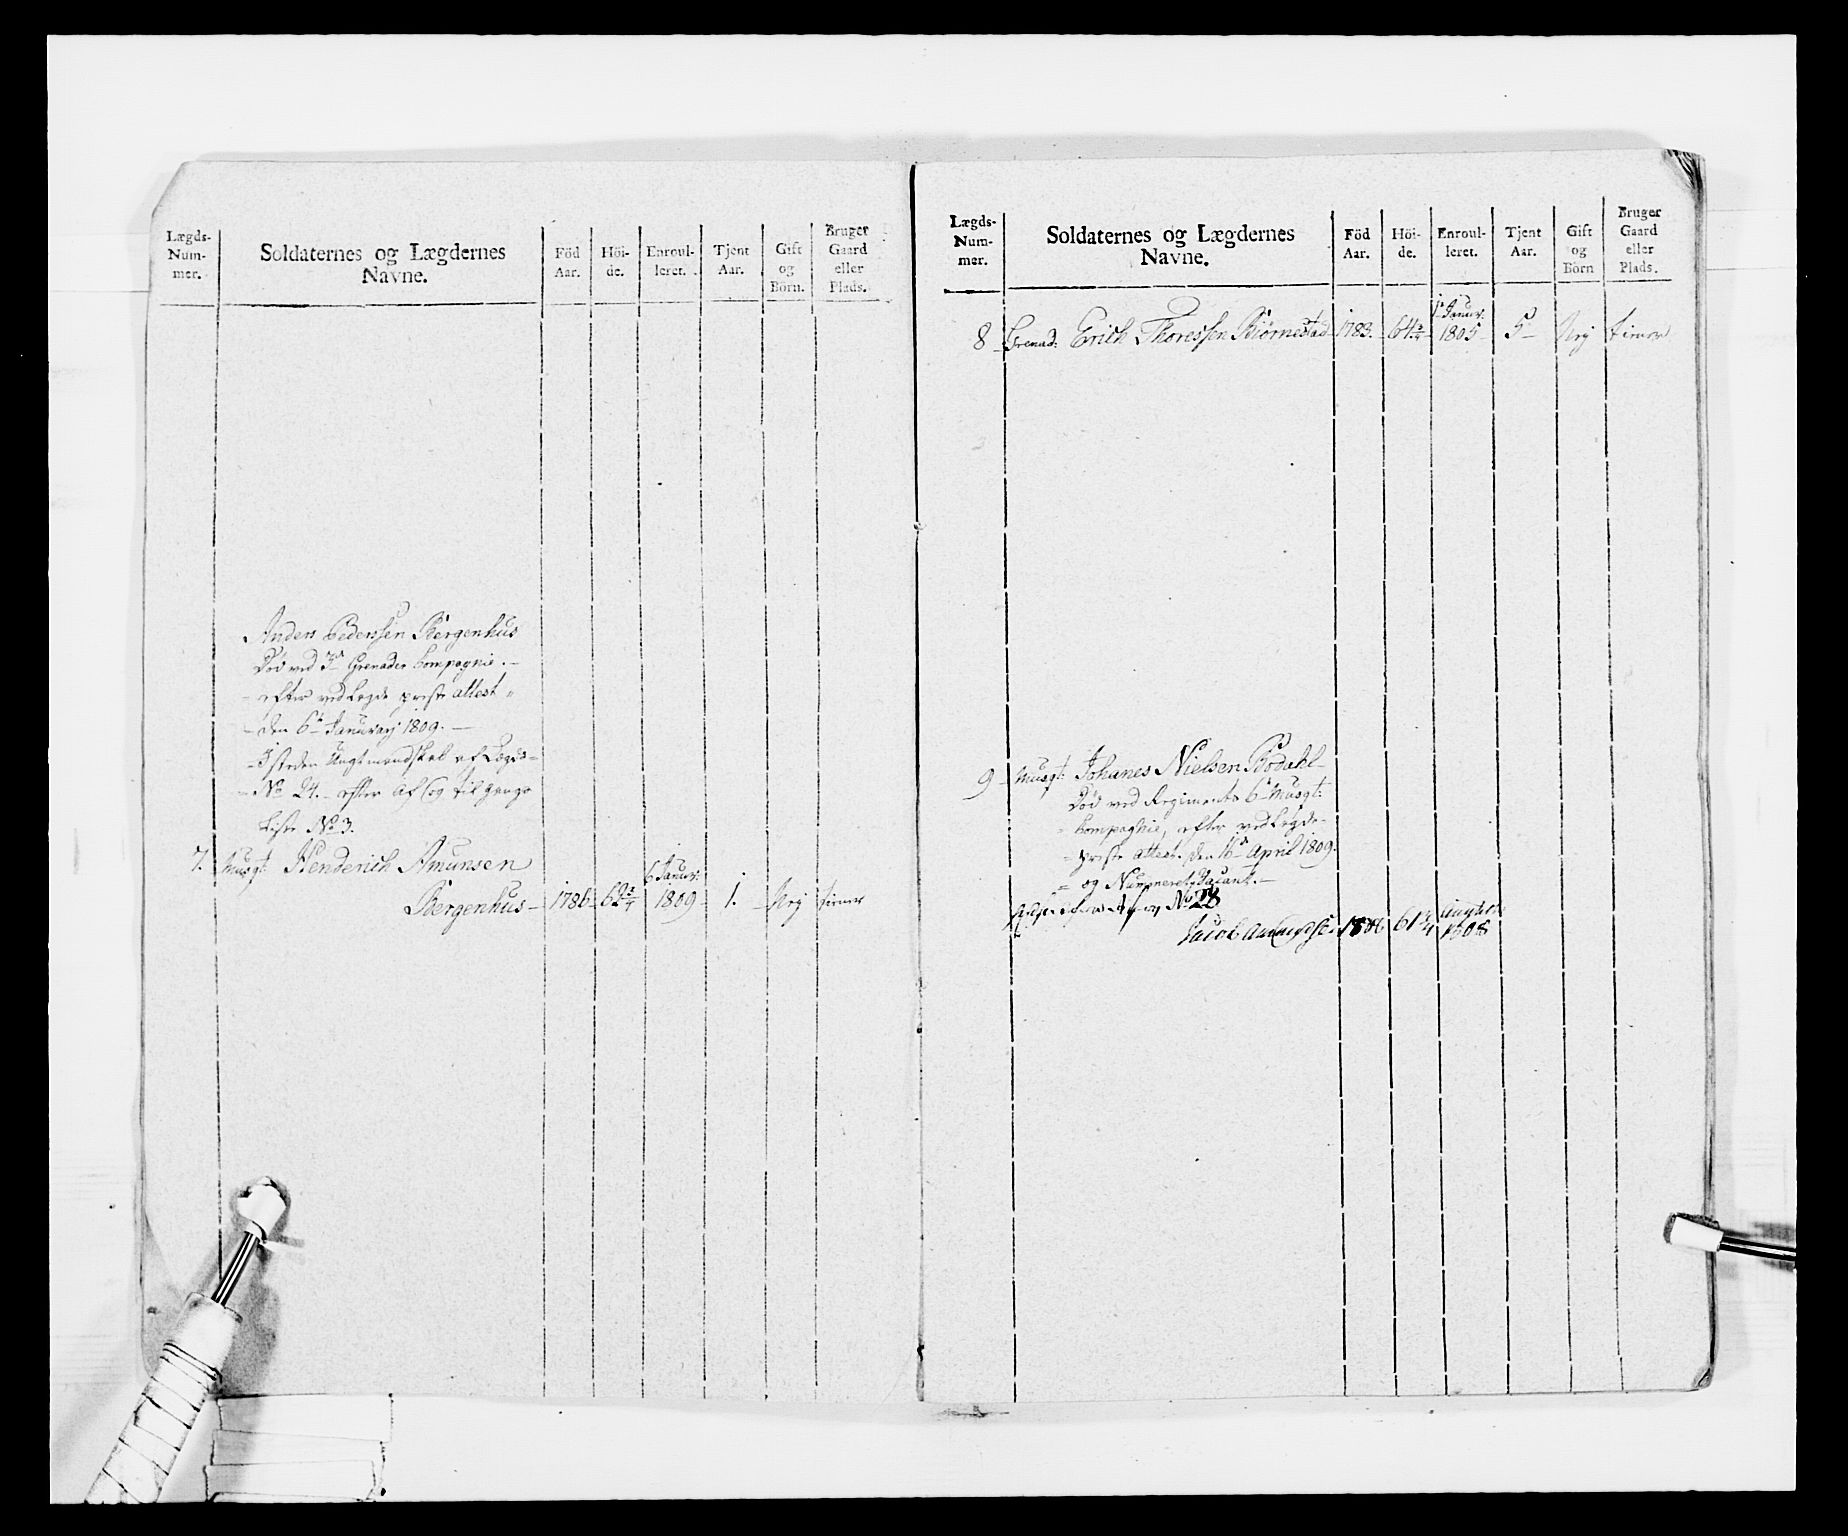 Lægds-
Num-
mer.
Soldaternes og Lægdernes
Navne.
Föd
Aar.
Höi-
de.
Enroul-
leret.
Tjent
Aar.
Gift
og
Börn.
Bruger
Gaard
eller
Plads.
Anders Pederssen Bergenhus
Död ved Grenader Compagnie. -
efter vedlegde præste attest
den 6te Januarij 1809. -
I steden Ungt mandskab af Legds-
No 24. - efter Af og til gangs
Liste No 3.
7. Musqt: Henderich Amunsen
Bergenhus - 1786 - 62 3/4 6 Januar: 1809 - 1. - Nei tiener
Lægds-
Num-
mer.
Soldaternes og Lægdernes
Navne.
Föd
Aar.
Höi-
de.
Enroul-
leret.
Tjent
Aar.
Gift
og
Börn
Bruger
Gaard
eller
Plads.
8 - Grenad: Erich Thoressen Biörnestad 1783. 64 3/4 Januar: 1805 - 5 - Nei tiener
9 - Musqt: Johanes Nielsen Bodahl -
Död ved Regiments 6te Musqt:
Compagnie, efter vedlegde-
præste attest. den 16de April 1809.
og Numeret Vacant. -
No 28
Jacob 61 1/4 1808